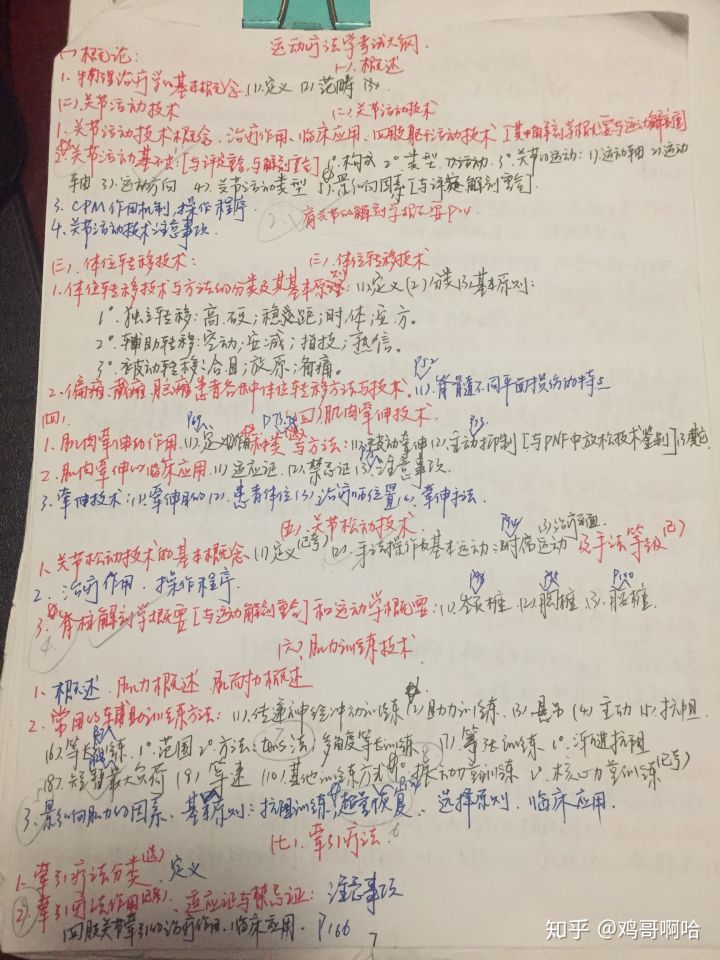 运动疗法学考试大纲.
(一)概论:
(一). 概述
1. 物理治疗学的基本概念. (1). 定义 (2) 范畴 (3).
(二). 关节活动技术
(二). 关节活动技术
1. 关节活动技术概念. 治疗作用. 临床应用. 四肢躯干活动技术 [其中解剖学概要与运动解剖]
2. 关节活动基本: [与评定, 与解剖重合] 1°. 构成 2° 类型 3°. 关节的运动: 1). 运动轴 2) 运动
轴 3). 运动方向 4). 关节活动类型 5). 影响因素 [与评定解剖重合].
3. CPM 作用机制. 操作程序.
有关节的解剖学概要 P24
4. 关节活动技术注意事项.
(三). 体位转移技术:
(三). 体位转移技术
1. 体位转移技术与方法的分类及其基本原则: (1). 定义 (2) 分类 (3). 基本原则:
1°. 独立转移: 高. 硬; 稳
2°. 辅助转移: 空动; 应减;
3°. 被动转移: 合目; 放原; 备痛.
P52
2. 偏瘫. 截瘫. 脑瘫患者各种体位转移方法与技术. (1). 脊髓不同平面损伤的特点
四).
P69
(四). 肌肉牵伸技术
1. 肌肉牵伸的作用. (1). 定义 种类与方法: (1). 被动牵伸 (2). 主动抑制 [与PNF中放松技术鉴别]
2. 肌肉牵伸的临床应用. (1) 适应证. (2). 禁忌证 (3). 注意事项.
3. 牵伸技术: (1). 牵伸目的 (2). 患者体位 (3) 治疗师位置 (4). 牵伸手法.
(五). 关节松动技术.
P94
(3). 治疗平面
1. 关节松动技术的基本概念 (1) 定义 (2). 手法操作及基本运动: 附属运动 及手法等级
2. 治疗作用. 操作程序.
3. 脊柱解剖学概要 [与运动解剖重合] 和运动学概要: (1). 颈椎. (2). 胸椎. (3). 腰椎.
(六). 肌力训练技术.
1. 概述. 肌力概述. 肌耐力概述
2. 常用的辅助训练方法: (1). 传递神经冲动训练 (2. 助力训练. (3). 悬吊 (4) 主动 (5). 抗阻.
(6). 等长训练. 1°. 范围 2°. 方法: tens法; 多角度等长训练 (7). 等张训练 1°. 渐进抗阻
(8). 短暂最大负荷 (9). 等速 (10). 其他训练方式 1° 振动力量训练 2° 核心力量训练
3. 影响肌力的因素. 基本原则: 抗阻训练, 超量恢复. 选择原则. 临床应用.
(七). 牵引疗法.
1. 牵引疗法分类. 定义
2. 牵引疗法作用. 适应证与禁忌证: 注意事项
四肢关节牵引的治疗作用. 临床应用. P166
7
知乎 @鸡哥啊哈